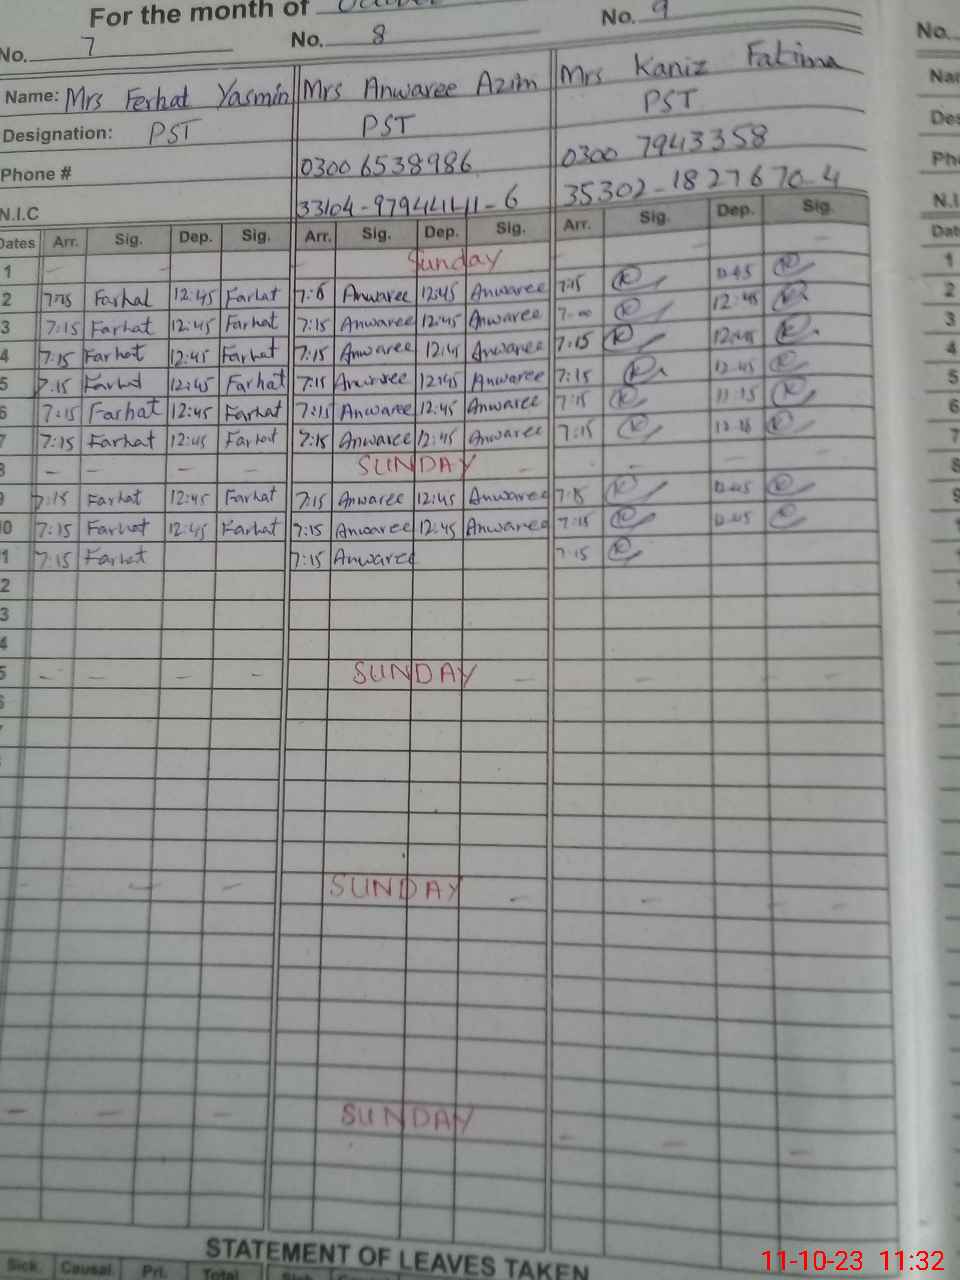 For the month of October
No. 7 No. 8 No. 9 No.
Name: Mrs Ferhat Yasmin Mrs Anwaree Azim Mrs Kaniz Fatima
Designation: PST PST PST
Phone # 0300 6538986 0300 7943358
N.I.C 33104-97944141-6 35302-1827670-4
Dates Arr. Sig. Dep. Sig. Arr. Sig. Dep. Sig. Arr. Sig. Dep. Sig.
1 Sunday
2 7:15 Farhat 12:45 Farhat 7:15 Anwaree 12:45 Anwaree 7:15 12:45
3 7:15 Farhat 12:45 Farhat 7:15 Anwaree 12:45 Anwaree 7:00 12:45
4 7:15 Farhat 12:45 Farhat 7:15 Anwaree 12:45 Anwaree 7:15 12:45
5 7:15 Farhat 12:45 Farhat 7:15 Anwaree 12:45 Anwaree 7:15 12:45
6 7:15 Farhat 12:45 Farhat 7:15 Anwaree 12:45 Anwaree 7:15 11:15
7 7:15 Farhat 12:45 Farhat 7:15 Anwaree 12:45 Anwaree 7:15
8 SUNDAY
9 7:15 Farhat 12:45 Farhat 7:15 Anwaree 12:45 Anwaree 7:15 12:45
0 7:15 Farhat 12:45 Farhat 7:15 Anwaree 12:45 Anwaree 7:15 12:45
1 7:15 Farhat 7:15 Anwaree 7:15
2
3
4
5 SUNDAY
SUNDAY
SUNDAY
STATEMENT OF LEAVES TAKEN
Sick Causal Pri. Total
11-10-23 11:32